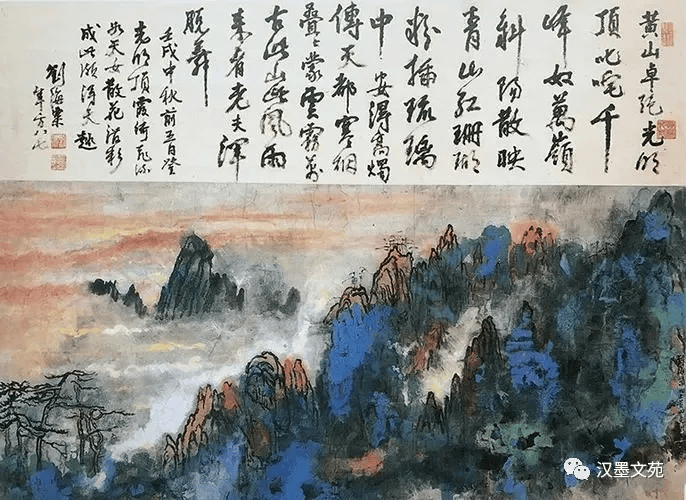 黃山卓絕光明
頂叱咤千
峰奴萬嶺
斜陽散映
青山紅珊瑚
粉插琉璃
中安得高燭
傳天都寒烟
疊疊蒙雲霧萬
古此山此風雨
來看老夫渾
脱舞
壬戌中秋前五日登
光明頂霞綺飛流
如天女散花潑彩
成此頗得天趣
劉海粟
年方八七
汉墨文苑